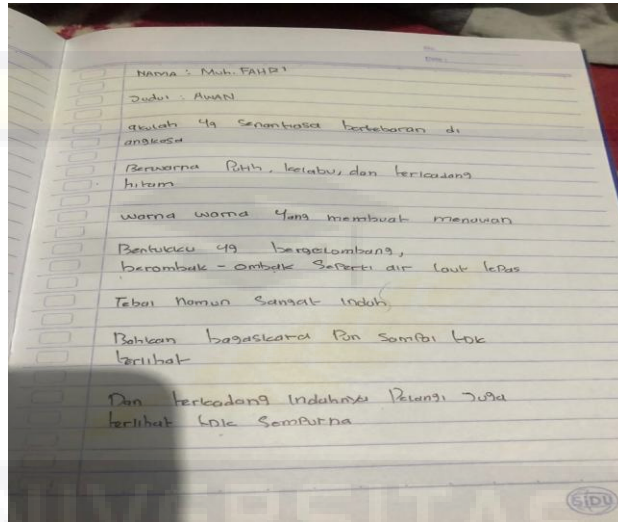 NAMA : Muh. FAHRI
Judul : AWAN
akulah yg senantiasa bertebaran di
angkasa
Berwarna Putih, kelabu, dan terkadang
hitam
warna warna yang membuat menawan
Bentukku yg bergelombang,
berombak - ombak seperti air laut lepas
Tebal namun sangat indah
Bahkan bagaskara pun sampai tdk
terlihat
Dan terkadang indahnya Pelangi juga
terlihat tdk sempurna
SIDU
UNIVERSITAS